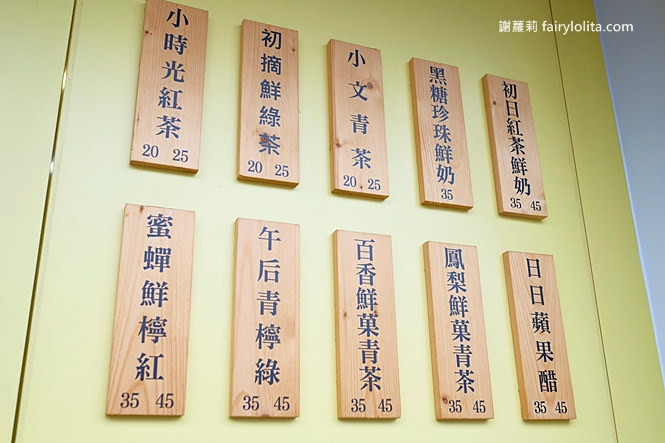 謝蘿莉 fairylolita.com
小時光紅茶
20 25
初摘鮮綠茶
20 25
小文青茶
20 25
黑糖珍珠鮮奶
35
初日紅茶鮮奶
35 45
蜜蟬鮮檸紅
35 45
午后青檸綠
35 45
百香鮮菓青茶
35 45
鳳梨鮮菓青茶
35 45
日日蘋果醋
35 45